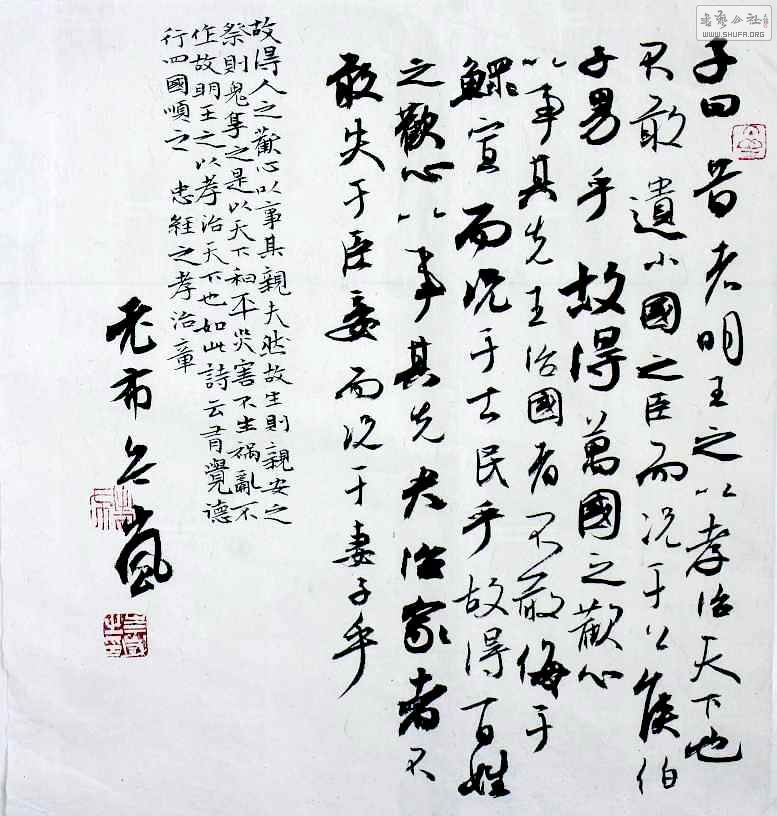 書藝公社
WWW.SHUFA.ORG
子曰昔者明王之以孝治天下也
不敢遺小國之臣而况于公侯伯
子男乎故得萬國之歡心
以事其先王治國者不敢侮于
鰥寡而况于士民乎故得百姓
之歡心以事其先夫治家者不
敢失于臣妾而况于妻子乎
故得人之歡心以事其親夫然故生則親安之
祭則鬼享之是以天下和平災害不生禍亂不
作故明王之以孝治天下也如此詩云有覺德
行四國順之 忠經之孝治章
老布嵐